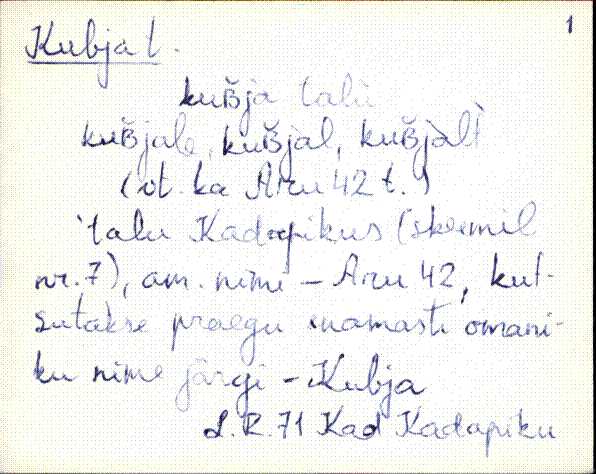 1
Kubja t.
kuʙ̆ja talu
kuʙ̆jale, kuʙ̆jal, kuʙ̆jalt
(vt. ka Aru 42 t.)
talu Kadapikus (skeemil
nr. 7), am. nimi – Aru 42, kut-
sutakse praegu enamasti omani-
ku nime järgi – Kubja
L.R. 71 Kad Kadapiku